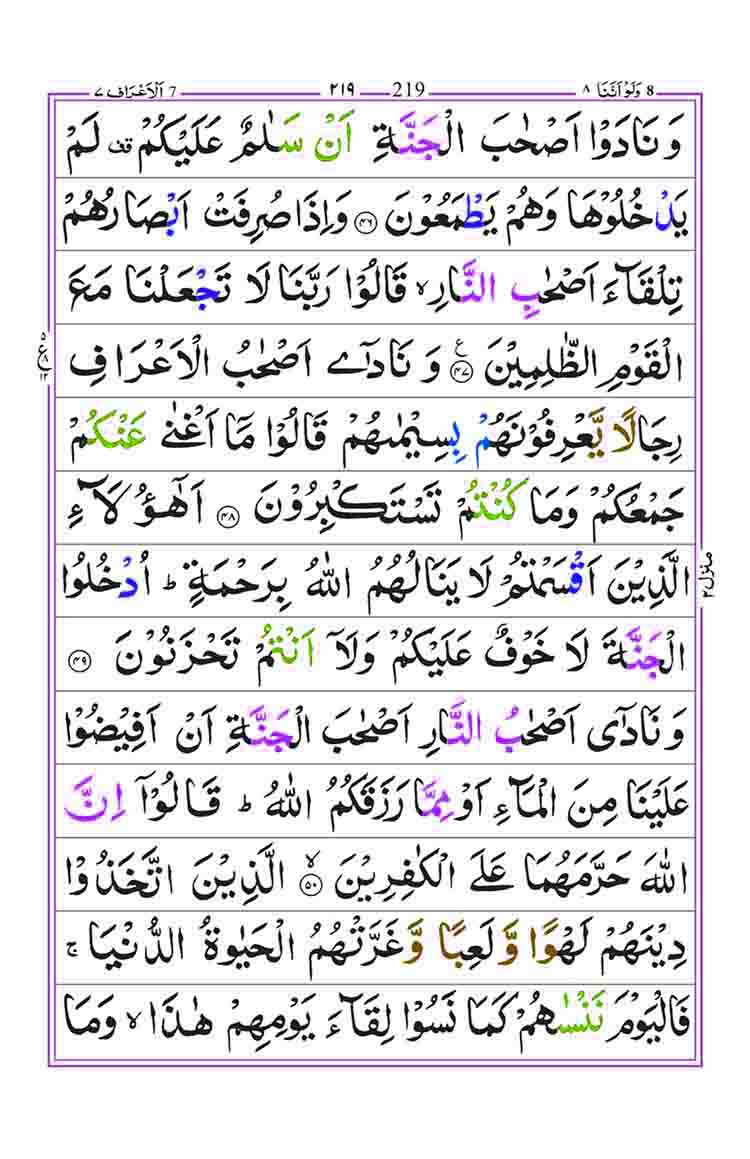 8 وَلَوْ اَنَّنَا ٨ 219 ٢١٩ 7 اَلْاَعْرَاف ٧
وَنَادَوْا اَصْحٰبَ الْجَنَّةِ اَنْ سَلٰمٌ عَلَيْكُمْ قف لَمْ
يَدْخُلُوْهَا وَهُمْ يَطْمَعُوْنَ ۝٤٦ وَاِذَا صُرِفَتْ اَبْصَارُهُمْ
تِلْقَآءَ اَصْحٰبِ النَّارِ ۙ قَالُوْا رَبَّنَا لَا تَجْعَلْنَا مَعَ
الْقَوْمِ الظّٰلِمِيْنَ ۝٤٧ ع وَنَادٰٓى اَصْحٰبُ الْاَعْرَافِ
رِجَالًا يَّعْرِفُوْنَهُمْ بِسِيْمٰىهُمْ قَالُوْا مَآ اَغْنٰى عَنْكُمْ
جَمْعُكُمْ وَمَا كُنْتُمْ تَسْتَكْبِرُوْنَ ۝٤٨ اَهٰٓؤُلَآءِ
الَّذِيْنَ اَقْسَمْتُمْ لَا يَنَالُهُمُ اللّٰهُ بِرَحْمَةٍ ؕ اُدْخُلُوا
الْجَنَّةَ لَا خَوْفٌ عَلَيْكُمْ وَلَآ اَنْتُمْ تَحْزَنُوْنَ ۝٤٩
وَنَادٰٓى اَصْحٰبُ النَّارِ اَصْحٰبَ الْجَنَّةِ اَنْ اَفِيْضُوْا
عَلَيْنَا مِنَ الْمَآءِ اَوْ مِمَّا رَزَقَكُمُ اللّٰهُ ؕ قَالُوْٓا اِنَّ
اللّٰهَ حَرَّمَهُمَا عَلَى الْكٰفِرِيْنَ ۝٥٠ ۙ الَّذِيْنَ اتَّخَذُوْا
دِيْنَهُمْ لَهْوًا وَّلَعِبًا وَّغَرَّتْهُمُ الْحَيٰوةُ الدُّنْيَا ۚ
فَالْيَوْمَ نَنْسٰىهُمْ كَمَا نَسُوْا لِقَآءَ يَوْمِهِمْ هٰذَا ۙ وَمَا
منزل ٢
٥ ع ٨ ١٢